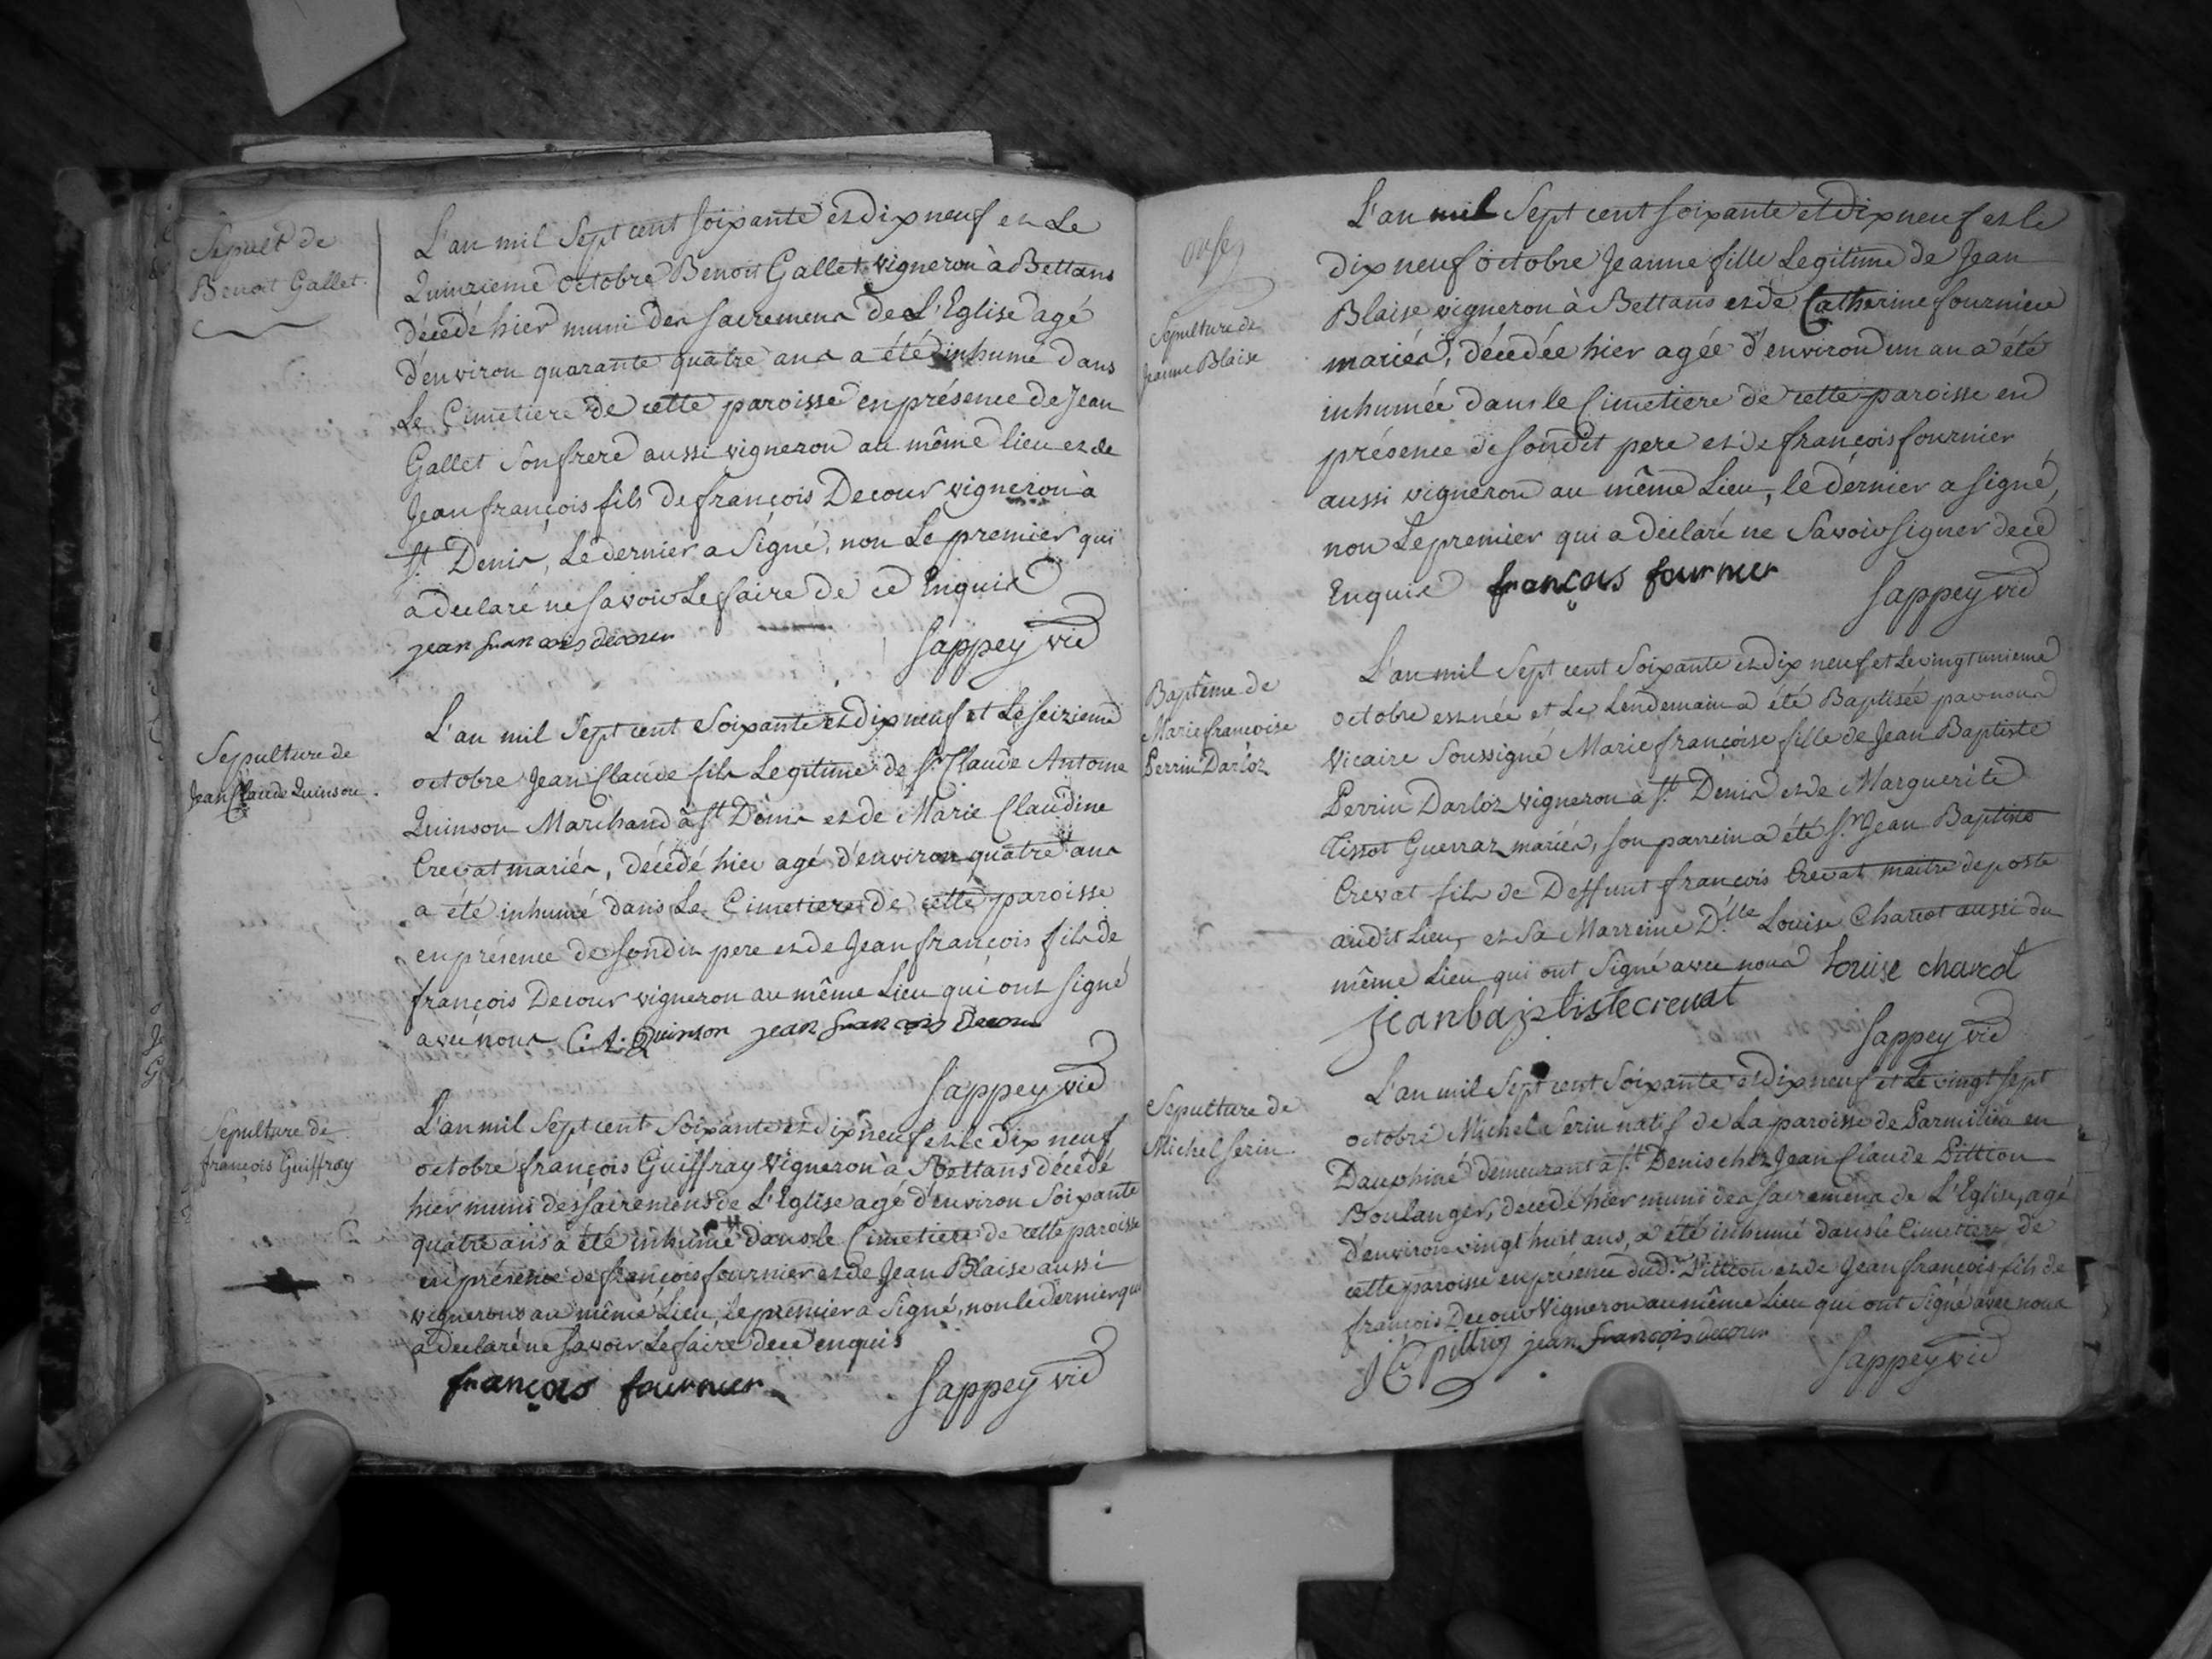 Sepult de
Benoit Gallet.
L'an mil Sept cent soixante et dix neuf et Le
Quinzieme octobre Benoit Gallet vigneron à Bettans
décédé hier muni des sacremens de L'Eglise agé
d'environ quarante quatre ans a été inhumé dans
Le Cimetiere de cette paroisse en présence de Jean
Gallet Son frere aussi vigneron au même lieu et de
Jean françois fils de françois Decour vigneron à
St. Denis, Le dernier a Signé, non Le premier qui
a declaré ne savoir Le faire de ce Enquis
jean francois decour Sappey vic
Sepulture de
Jean Claude Quinson.
L'an mil Sept cent Soixante et dix neuf et Le seizieme
octobre Jean Claude fils Legitime de Sr. Claude Antoine
Quinson Marchand à St Denis et de Marie Claudine
Crevat mariés, décédé hier agé d'environ quatre ans
a été inhumé dans Le Cimetiere de cette paroisse
en présence de son dit pere et de Jean françois fils de
françois Decour vigneron au même Lieu qui ont signé
avec nous C. A. Quinson jean francois Decour
Sappey vic
Sepulture de
françois Guiffray
L'an mil Sept cent Soixante et dix neuf et le dix neuf
octobre françois Guiffray Vigneron à Bettans décédé
hier muni des sacremens de L'Eglise agé d'environ Soixante
quatre ans a été inhumé dans le Cimetiere de cette paroisse
en présence de françois fournier et de Jean Blaise aussi
vignerons au même Lieu, le premier a Signé, non le dernier qui
a declaré ne savoir Le faire de ce enquis
françois fournier Sappey vic
Sepulture de
Jeanne Blaise
L'an mil Sept cent soixante et dix neuf et le
dix neuf octobre Jeanne fille Legitime de Jean
Blaise vigneron à Bettans et de Catherine fourniere
mariés, décédée hier agée d'environ un an a été
inhumée dans le Cimetiere de cette paroisse en
présence de son dit pere et de françois fournier
aussi vigneron au même Lieu, le dernier a signé,
non Le premier qui a déclaré ne Savoir signer de ce
Enquis françois fournier Sappey vic
Baptême de
Marie francoise
Perrin Darloz
L'an mil Sept cent Soixante et dix neuf et Le vingt unieme
octobre est née et Le Lendemain a été Baptisée par nous
Vicaire Soussigné Marie françoise fille de Jean Baptiste
Perrin Darloz vigneron à St. Denis et de Marguerite
Tissot Guerraz mariés, son parrein a été Sr. Jean Baptiste
Crevat fils de Deffunt françois Crevat maitre de poste
audit Lieu, et Sa Marreine Dlle Louise Charcot aussi du
même Lieu qui ont Signé avec nous Louise charcot
jeanbaptistecrevat
Sappey vic
Sepulture de
Michel Serin
L'an mil Sept cent Soixante et dix neuf et Le vingt sept
octobre Michel Serin natif de La paroisse de Parmilieu en
Dauphiné demeurant à St Denis chez Jean Claude Pittion
Boulanger, decedé hier muni des sacremens de L'Eglise, agé
d'environ vingt huit ans, a été inhumé dans le Cimetiere de
cette paroisse en présence dud. Pittion et de Jean françois fils de
françois Decour Vigneron au même Lieu qui ont Signé avec nous
jC pittion jean françois decour Sappey vic